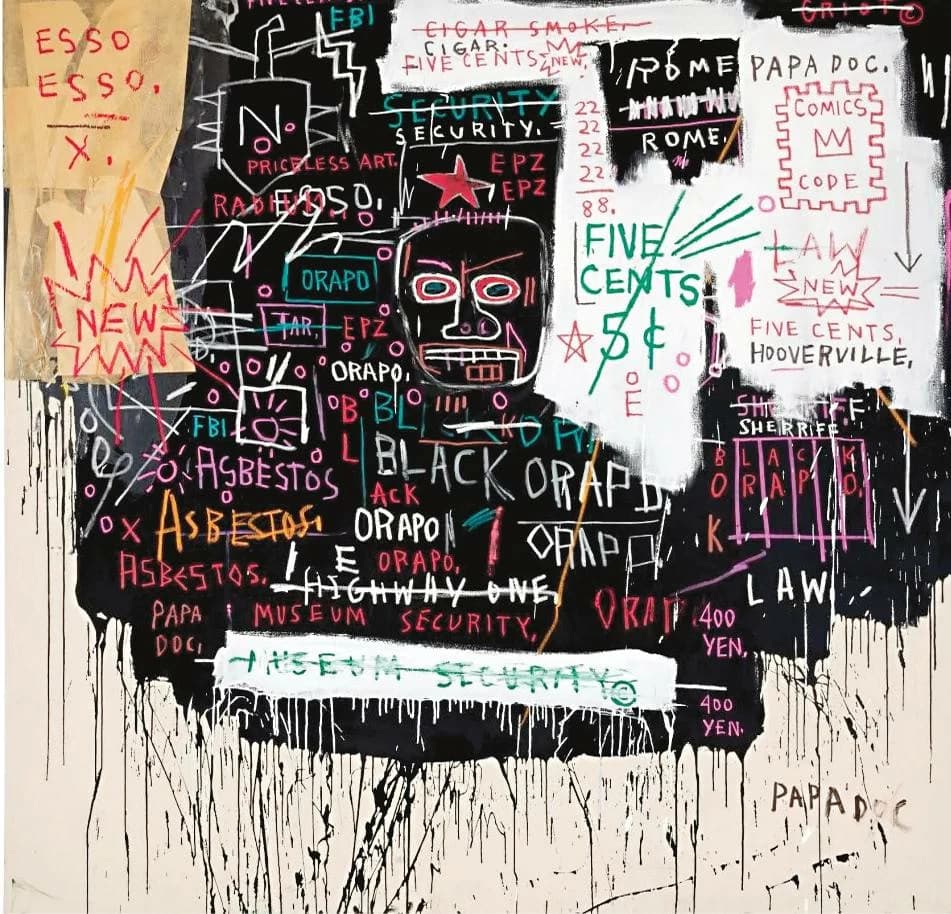 FBI
GRIOT ©
ESSO
ESSO.
X.
CIGAR SMOKE.
CIGAR.
FIVE CENTS
NEW.
ROME
ROME.
PAPA DOC.
COMICS
CODE
N.
PRICELESS ART.
SECURITY
SECURITY.
EPZ
EPZ
22
22
22
22
88.
RADIUM.
ESSO.
FIVE
CENTS
5¢
LAW
NEW
FIVE CENTS,
HOOVERVILLE,
ORAPO
TAR.
EPZ
NEW
ORAPO,
O
E
FBI
B
L
BL
SHERRIFF
SHERRIFF
ASBESTOS
BLACK ORAPO
ACK
B LACK
O RAPO,
K
X ASBESTOS.
ORAPO
ORAPO
ASBESTOS.
I E ORAPO,
HIGHWAY ONE,
LAW
PAPA
DOC,
MUSEUM SECURITY,
ORAP
400
YEN.
MUSEUM SECURITY ©
400
YEN.
PAPA DOC